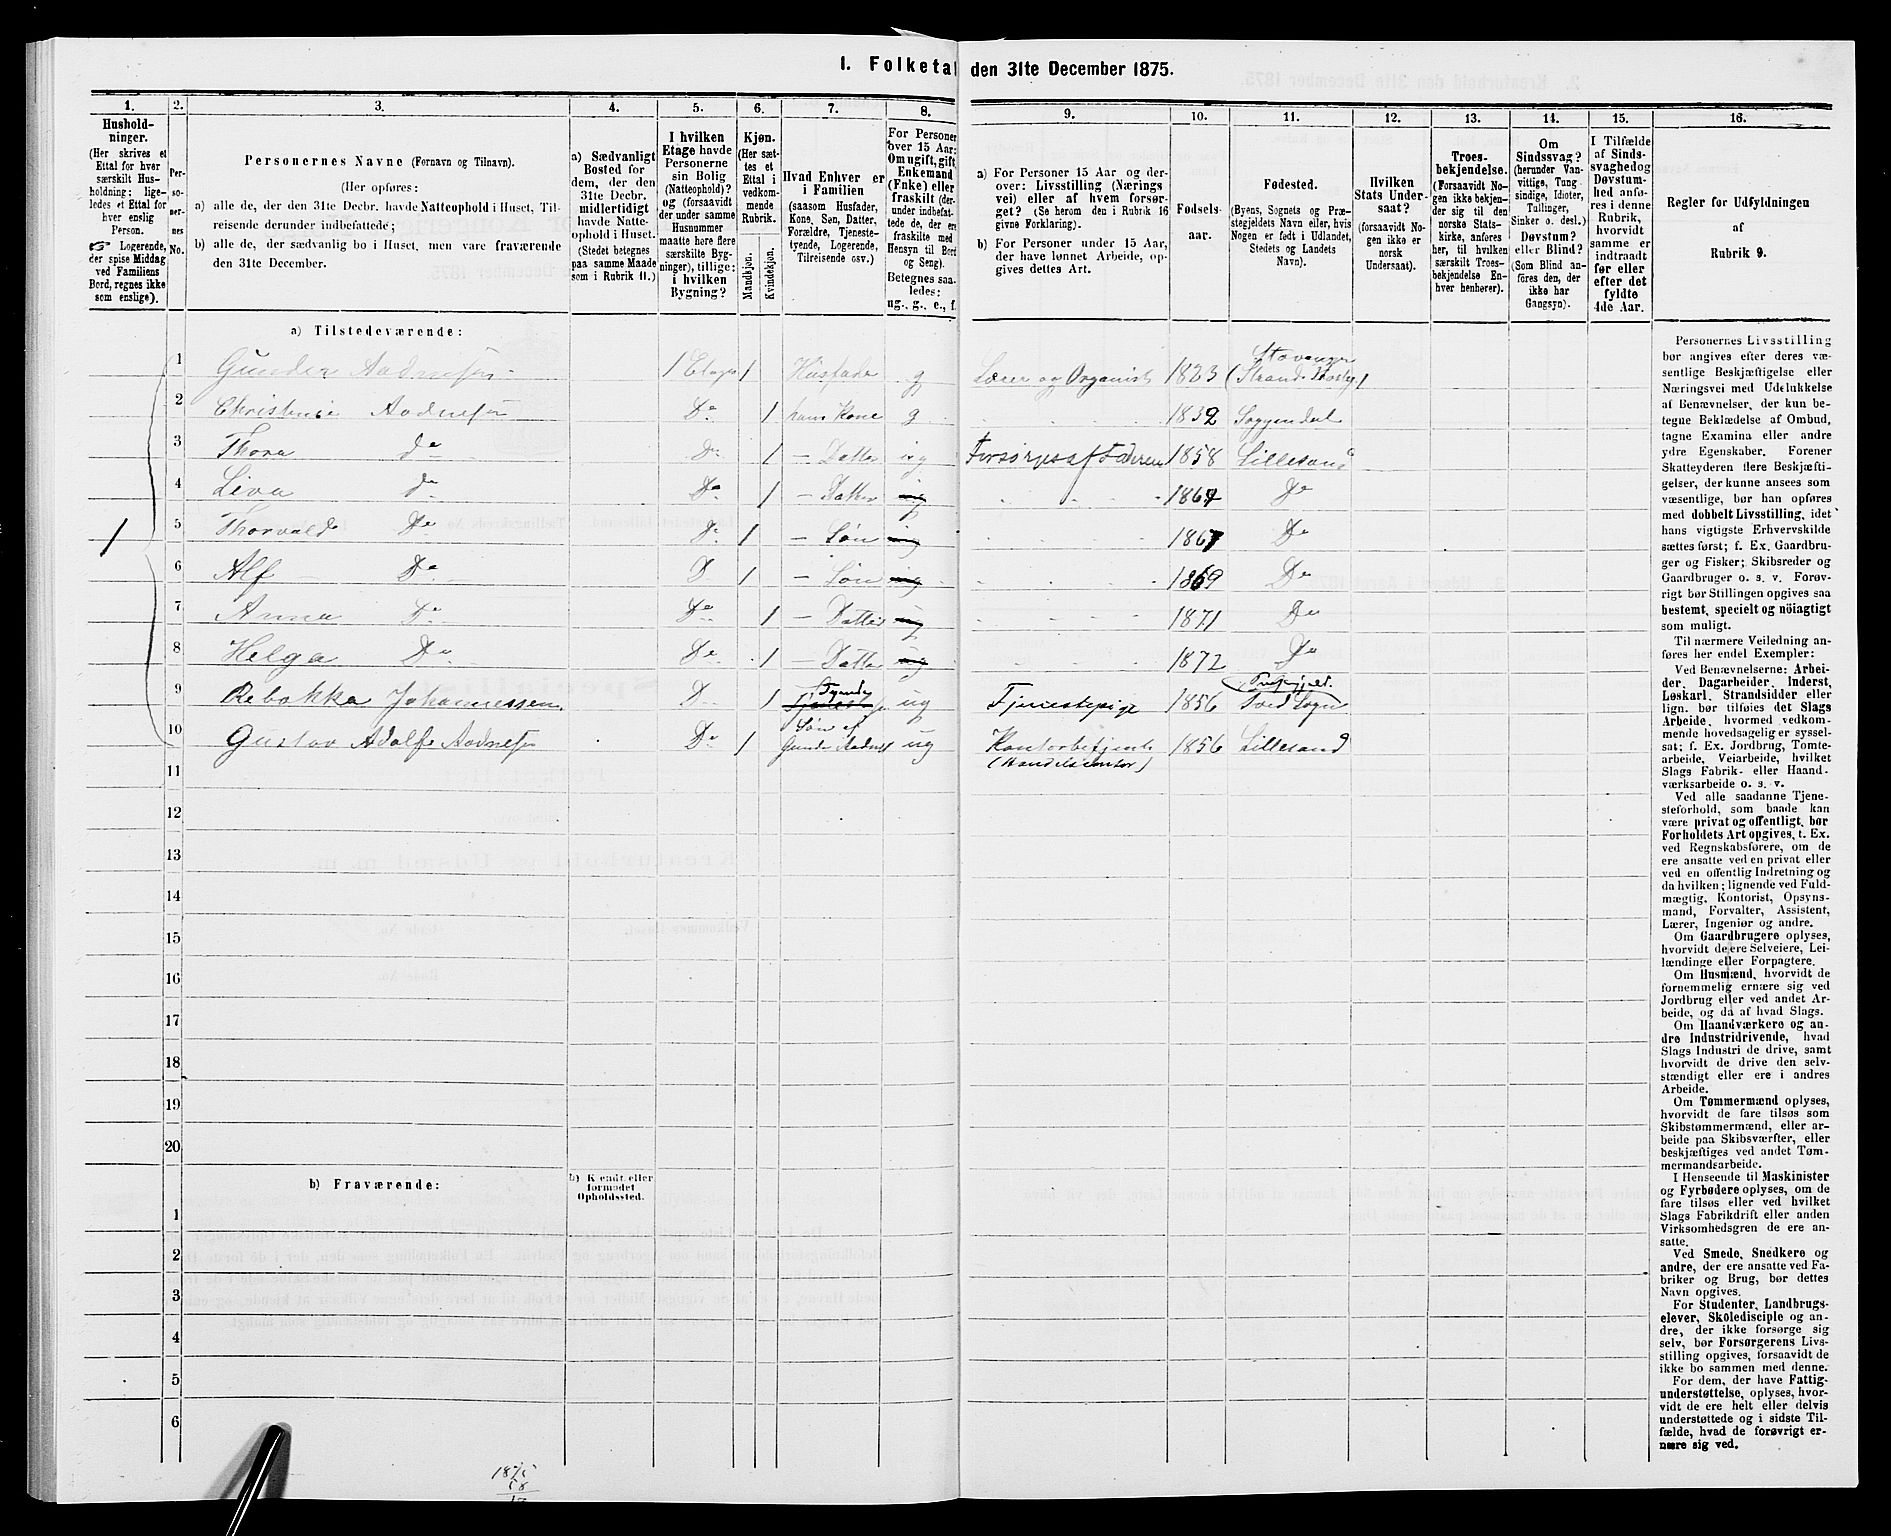 1. Folketal den 31te December 1875.
1.
Hushold-
ninger.
(Her skrives et
Ettal for hver
særskilt Hus-
holdning: lige-
ledes et Ettal for
hver enslig
Person.
Logerende,
der spise Middag
ved Familiens
Bord, regnes ikke
som enslige).
2.
Per-
so-
ner-
nes
No.
3.
Personernes Navne (Fornavn og Tilnavn).
(Her opføres:
a) alle de, der den 31te Decbr. havde Natteophold i Huset, Til-
reisende derunder indbefattede;
b) alle de, der sædvanlig bo i Huset, men vare fraværende
den 31te December.
4.
a) Sædvanligt
Bosted for
dem, der den
31te Decbr.
midlertidigt
havde Natte-
ophold i Huset.
(Stedet betegnes
paa samme Maade
som i Rubrik 11.)
5.
I hvilken
Etage havde
Personerne
sin Bolig
(Natteophold)?
og (forsaavidt
der under samme
Husnummer
maatte høre flere
særskilte Byg-
ninger), tillige:
i hvilken
Bygning?
6.
Kjøn.
(Her sæt-
tes et
Ettal i
vedkom-
mende
Rubrik.
Mandkjøn.
Kvindekjøn.
7.
Hvad Enhver er
i Familien
(saasom Husfader,
Kone, Søn, Datter,
Forældre, Tjeneste-
tyende, Logerende,
Tilreisende osv.)
8.
For Personer
over 15 Aar:
Om ugift, gift,
Enkemand
(Enke) eller
fraskilt (der-
under indbefat-
tede de, der ere
fraskilte med
Hensyn til Bord
og Seng).
Betegnes saa-
ledes:
ug., g., e., f.
9.
a) For Personer 15 Aar og der-
over: Livsstilling (Nærings
vei) eller af hvem forsør-
get? (Se herom den i Rubrik 16
givne Forklaring).
b) For Personer under 15 Aar,
der have lønnet Arbeide, op-
gives dettes Art.
10.
Fødsels-
aar.
11.
Fødested.
(Byens, Sognets og Præ-
stegjeldets Navn eller, hvis
Nogen er født i Udlandet,
Stedets og Landets
Navn).
12.
Hvilken
Stats Under-
saat?
(forsaavidt No-
gen ikke er
norsk
Undersaat).
13.
Troes-
bekjendelse.
(Forsaavidt No-
gen ikke bekjen-
der sig til den
norske Stats-
kirke, anføres
her, til hvilken
særskilt Troes-
bekjendelse En-
hver henhører).
14.
Om
Sindssvag?
(herunder Van-
vittige, Tung
sindige, Idioter,
Tullinger,
Sinker o. desl.)
Døvstum?
eller Blind?
(Som Blind an-
føres den, der
ikke har
Gangsyn).
15.
I Tilfælde
af Sinds-
svaghedog
Døvstum-
hed anfø-
res i denne
Rubrik,
hvorvidt
samme er
indtraadt
før eller
efter det
fyldte
4de Aar.
16.
Regler for Udfyldningen
af
Rubrik 9.
a) Tilstedeværende:
1 Gunder Aadnesen 1 Etage 1 Husfader g Lærer og Organist 1823 Stavanger
(Strand
2 Christense Aadnesen Do 1 hans Kone g 1832 Soggendal
3 Thora do Do 1 — Datter ug Forsørges af Faderen 1858 Lillesand
4 Liva do Do 1 — Datter ug 1864 Do
1
5 Thorvald Do Do 1 — Søn ug 1867 Do
6 Alf Do D 1 — Søn ug 1869 Do
7 Anna Do Do 1 — Datter ug 1871 Do
8 Helga Do Do 1 — Datter ug 1872 Do
9 Rebekka Johannessen D 1 Tyende ug Tjenestepige 1856 Sogn
10 Gustav Adolf Aadnesen Do 1 Søn af
Gunder Aadnes ug Kontorbetjent 1856 Lillesand
(Handelscontor)
11
12
13
14
15
16
17
18
19
20
b) Fraværende:
b) Kjendt eller
formodet
Opholdssted.
1
2
3
4
5
6
1875
58
17
Personernes Livsstilling
bør angives efter deres væ-
sentlige Beskjæftigelse eller
Næringsvei med Udelukkelse
af Benævnelser, der kun be-
tegne Beklædelse af Ombud,
tagne Examina eller andre
ydre Egenskaber. Forener
Skatteyderen flere Beskjæfti-
gelser, der kunne ansees som
væsentlige, bør han opføres
med dobbelt Livsstilling, idet
hans vigtigste Erhvervskilde
sættes først; f. Ex. Gaardbru-
ger og Fisker; Skibsreder og
Gaardbruger o. s. v. Forøv-
rigt bør Stillingen opgives saa
bestemt, specielt og nöiagtigt
som muligt.
Til nærmere Veiledning an-
føres her endel Exempler:
Ved Benævnelserne: Arbei-
der, Dagarbeider, Inderst,
Løskarl, Strandsidder eller
lign. bør tilføies det Slags
Arbeide, hvormed vedkom-
mende hovedsagelig er syssel-
sat; f. Ex. Jordbrug, Tomte-
arbeide, Veiarbeide, hvilket
Slags Fabrik- eller Haand-
værksarbeide o. s. v.
Ved alle saadanne Tjene-
steforhold, som baade kan
være privat og offentligt, bør
Forholdets Art opgives, t. Ex.
ved Regnskabsførere, om de
ere ansatte ved en privat eller
ved en offentlig Indretning og
da hvilken; lignende ved Fuld-
mægtig, Kontorist, Opsyns-
mand, Forvalter, Assistent,
Lærer, Ingeniør og andre.
Om Gaardbrugere oplyses,
hvorvidt de ere Selveiere, Lei-
lændinge eller Forpagtere.
Om Husmænd, hvorvidt de
fornemmelig ernære sig ved
Jordbrug eller ved andet Ar-
beide, og da af hvad Slags.
Om Haandværkere og an-
dre Industridrivende, hvad
Slags Industri de drive, samt
hvorvidt de drive den selv-
stændigt eller ere i andres
Arbeide.
Om Tømmermænd oplyses,
hvorvidt de fare tilsøs som
Skibstømmermænd, eller ar-
beide paa Skibsværfter, eller
beskjæftiges ved andet Tøm-
mermandsarbeide.
I Henseende til Maskinister
og Fyrbødere oplyses, om de
fare tilsøs eller ved hvilket
Slags Fabrikdrift eller anden
Virksomhedsgren de ere an-
satte.
Ved Smede, Snedkere og
andre, der ere ansatte ved Fa-
briker og Brug, bør dettes
Navn opgives.
For Studenter, Landbrugs-
elever, Skoledisciple og an-
dre, der ikke forsørge sig
selv, bør Forsørgerens Livs-
stilling opgives, forsaavidt de
ikke bo sammen med denne.
For dem, der have Fattig-
understøttelse, oplyses, hvor-
vidt de ere helt eller delvis
understøttede og i sidste Til-
fælde, hvad de forøvrigt er-
nære sig ved.